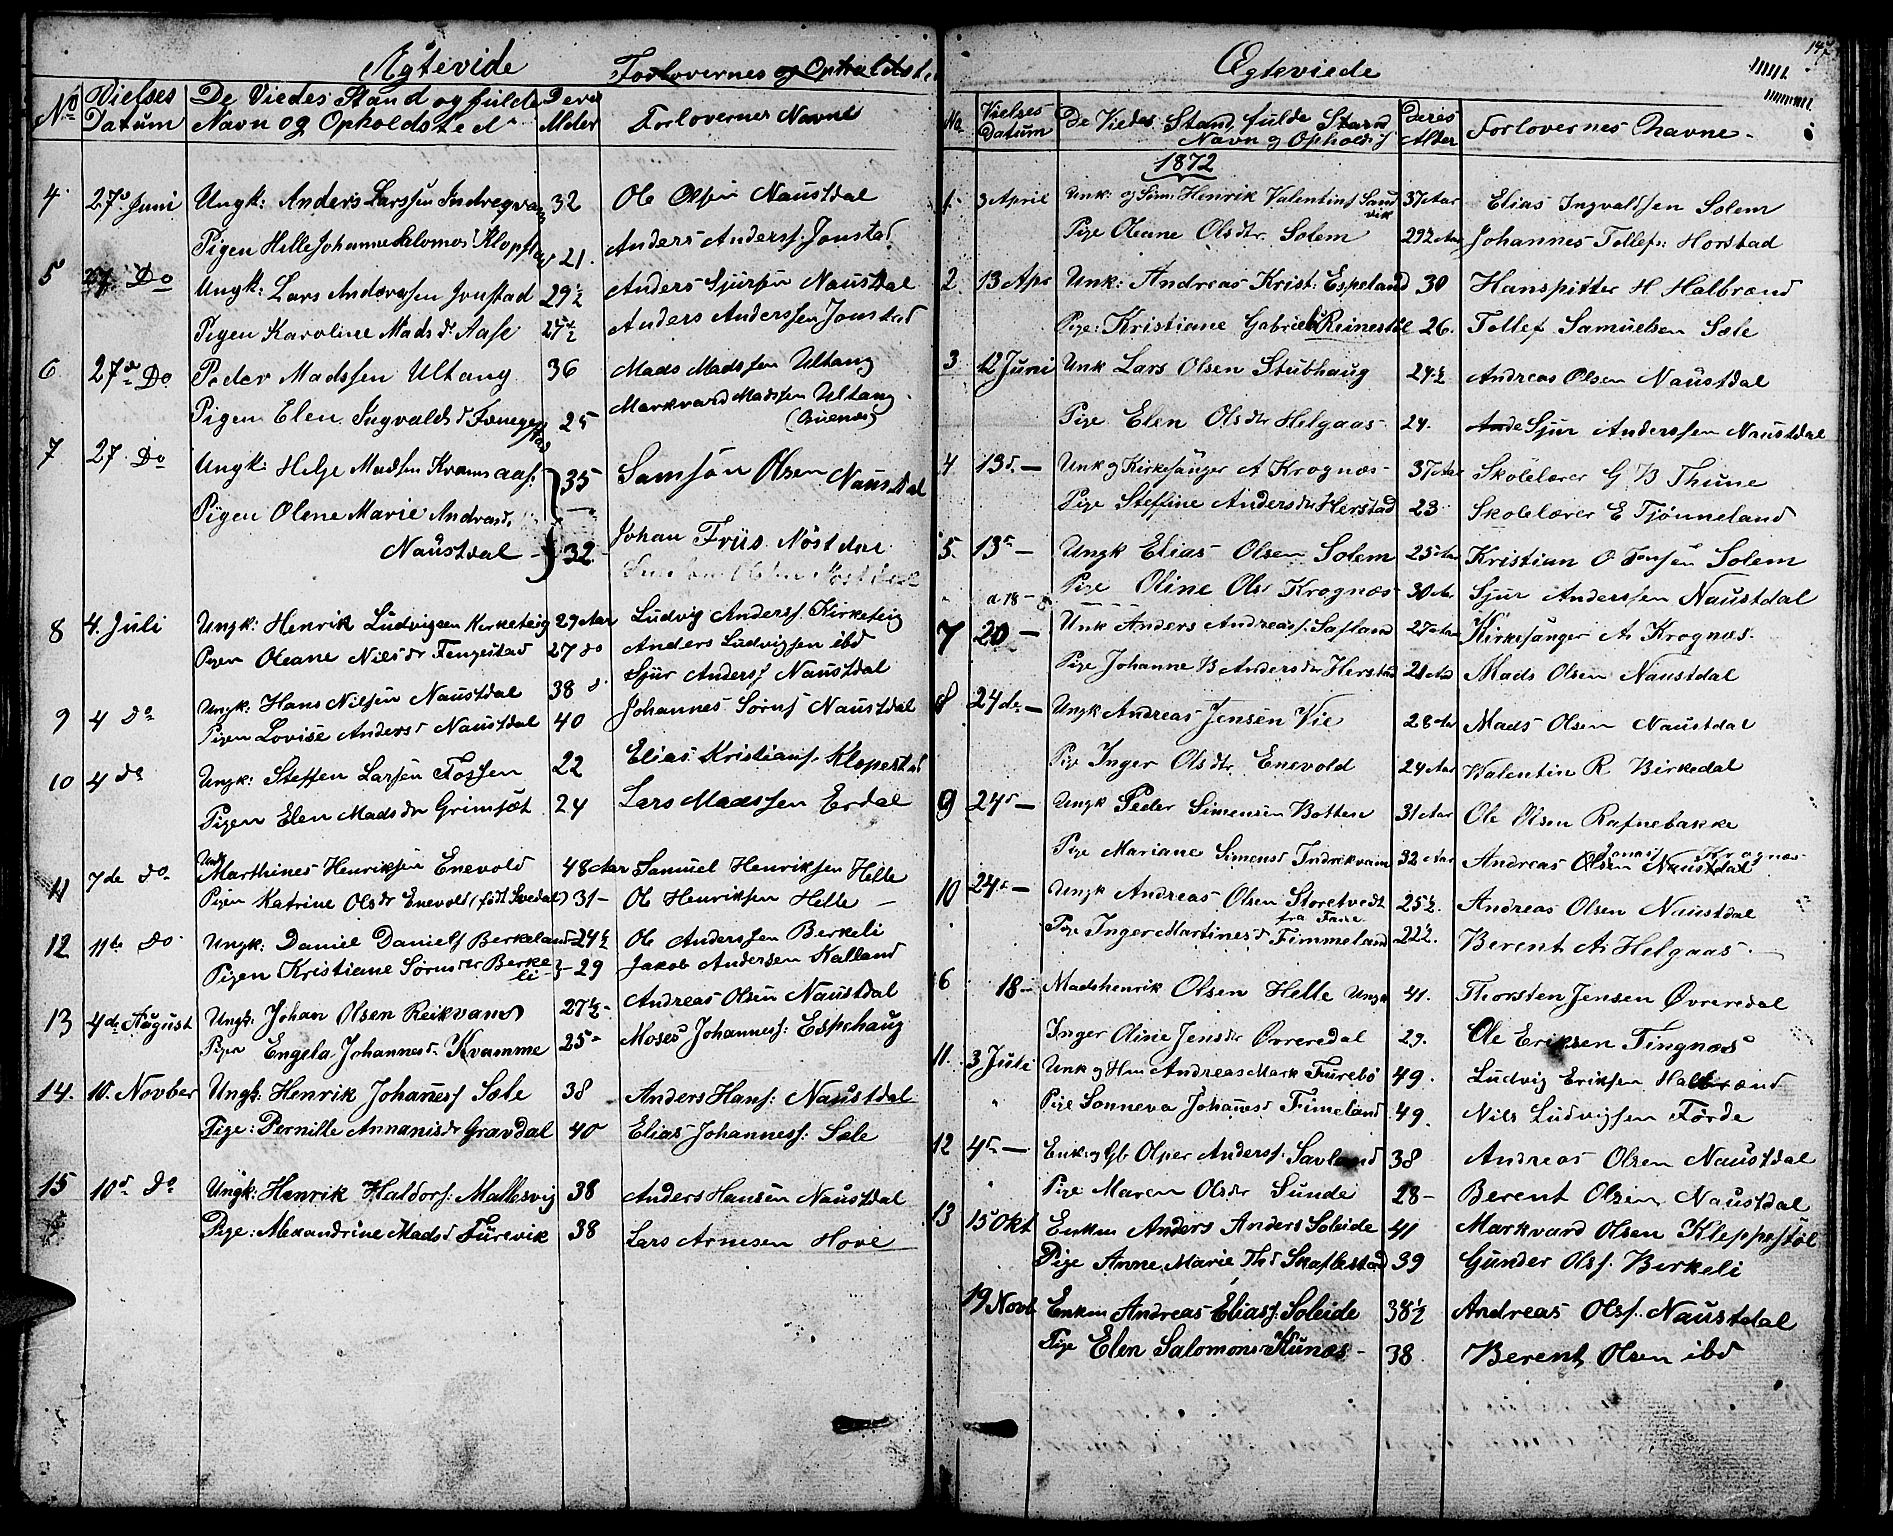 Ægtevide
Forlovernes og Opholdste
No Vielses Datum De Viedes Stand og fulde Navn og Opholdsted Deres Alder Forlovernes Navne
4 27d Juni Ungk: Anders Larssen 32 Ole Olsen Naustdal
Pigen Helle Johanne Salomos 21. Anders Anderss: Jonstad
5 27 Do Ungk: Lars Anderssen Jonstad 29½ Anders Sjursen Naustdal
Pigen Karoline Mads d. Aase Anders Anderssen Jonstad
6 27de Do Peder Madssen Ultang 36 Mads Madssen Ultang
Pigen Elen Ingvalds d 25 Markvard Madssen Ultang
7 27 Do Ungk: Helge Madsen 35 Samson Olsen Naustdal
Pigen Olene Marie Andreasd.
Naustdal 32 Johan Friis Nøstdal
8 4. Juli Ungk: Henrik Ludvigsen Kirketeig 29 Aar Ludvig Anderss Kirketeig
Pigen Oleane Nielsdr Fengestad 27 do Anders Ludvigsen ibd
9 4 do Ungk: Hans Nilsen Naustdal 38 Sjur Anderss Naustdal
Pigen Lovise Andersd Naustdal 40 Johannes Sørns Naustdal
10 4 do Ungk: Steffen Larsen Fossen 22 Elias Kristians. Klopestad
Pigen Elen Madsdr Grimset 24 Lars Madssen Erdal
11 7de do Ungk Marthines Henriksen Enevold 48 Aar Samuel Henriksen Helle
Pigen Katrine Olsdr Enevold (født Svedal) 31 - Ole Henriksen Helle -
12 11te Do Ungk: Daniel Daniels Berkeland 24½ Ole Anderssen Berkeli
Pigen Kristiane Sørnsdr Berkeli 29 Jakob Andersen Kalland
13 4de August Ungk: Johan Olsen Reikvam 27½ - Andreas Olsen Naustdal
Pigen Engela Johannesd. Kvamme 25 - Moses Johanness: Espehaug
14. 10. Novber Ungk: Henrik Johaness Sæle 38 Anders Hans: Naustdal
Pige: Pernille Annanisdr Gravdal 40 Elias Johanness: Sæle
15 10d do Ungk: Henrik Haldors: Mallesvig 38 Anders Hansen Naustdal
Pige: Alexandrine Madsd Furevik 38 Lars Arnesen Hove
Ægteviede
147
No Vielses Datum De Viedes Stand, fulde Navn og Ophold Deres Alder Forlovernes Navne -
1872
1. 3 April Unk: og Henrik Valentins Sandvik 37 Aar Elias Ingvaldsen Solem
Pige Oleane Olsdtr. Solem 29½ Aar Johannes Tollefs: Horstad
2 13 Apr Unk: Andreas Krist: Espeland 30 Hanspitter H Halbrænd
Pige: Kristiane Gabriels Reinestøl 26. Tollef Samuelsen Sæle
3 12 Juni Unk Lars Olsen Stubhaug 24½ Andreas Olsen Naustdal
Pige Elen Olsdtr Helgaas 24. Sjur Anderssen Naustdal
4 13d. - Unk og Kirkesanger A Krognæs - 37 Aar Skolelærer G B Thune
Pige Steffine Andersdr Herstad 23 Skolelærer E Tjønneland
5. 13d - Ungk Elias Olsen Solem 25 Aar Kristian O Solem
Pige Oline Olsd Krognæs 30 Aar Sjur Anderssen Naustdal
7 20 - Unk Anders Andreass. Safland 27 Aar Kirkesanger A. Krognæs.
Pige Johanne B Andersdr Herstad Mads Olsen Naustdal
8 24de - Ungk Andreas Jensen Vie 28 Aar Mads Olsen Naustdal
Pige Inger Olsdtr. Enevold 24 Aar Valentin R Birkedal
9 24d - Ungk Peder Simensen Botten 31 Aar Ole Olsen Rafnebakke
Pige Mariane Simensd Indrekvam 32 Aar Andreas Olsen Naustdal Krognæs
10 24d - Ungk Andreas Olsen Storetvedt 25½ Andreas Olsen Naustdal
Pige Inger Martinesd Fimmeland 22½. Berent A. Helgaas
6 18 - Madshenrik Olsen Helle Ungk 41. Thorsten Jensen Øvreredal
Inger Oline Jensdr Øvreredal 29. Ole Eriksen Tingnæs
11. 3 Juli Unk og Andreas Mark Furebø 49. Ludvig Eriksen Halbrænd
" Pige Sønneva Johanesd Fimeland 49. Nils Ludvigsen Førde
12 4d - Enk. og Olper Anderss. Savland 38 Andreas Olsen Naustdal
" Pige Maren Olsdr Sunde 28 - Berent Olsen Naustdal
13 15 Okt Enken Anders Anders Soleide 41 Markvard Olsen Kleppestøl
Pige Anne Marie Skaflestad 39 Gunder Ols. Berkeli
19 Novb Enken Andreas Eliass: Soleide 38½ Andreas Ols. Naustdal
Pige Elen Salomons Kunæs - 38 Berent Olsen ibd